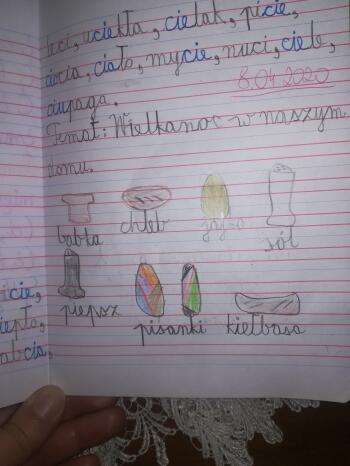 leci, uciekła, cielak, picie,
ciocia, ciało, mycie, nuci, ciele,
ciupaga.
8.04.2020
Temat: Wielkanoc w naszym
domu.
babka chleb jajko sól
piepsz pisanki kiełbasa
icie,
iepło,
abcia,